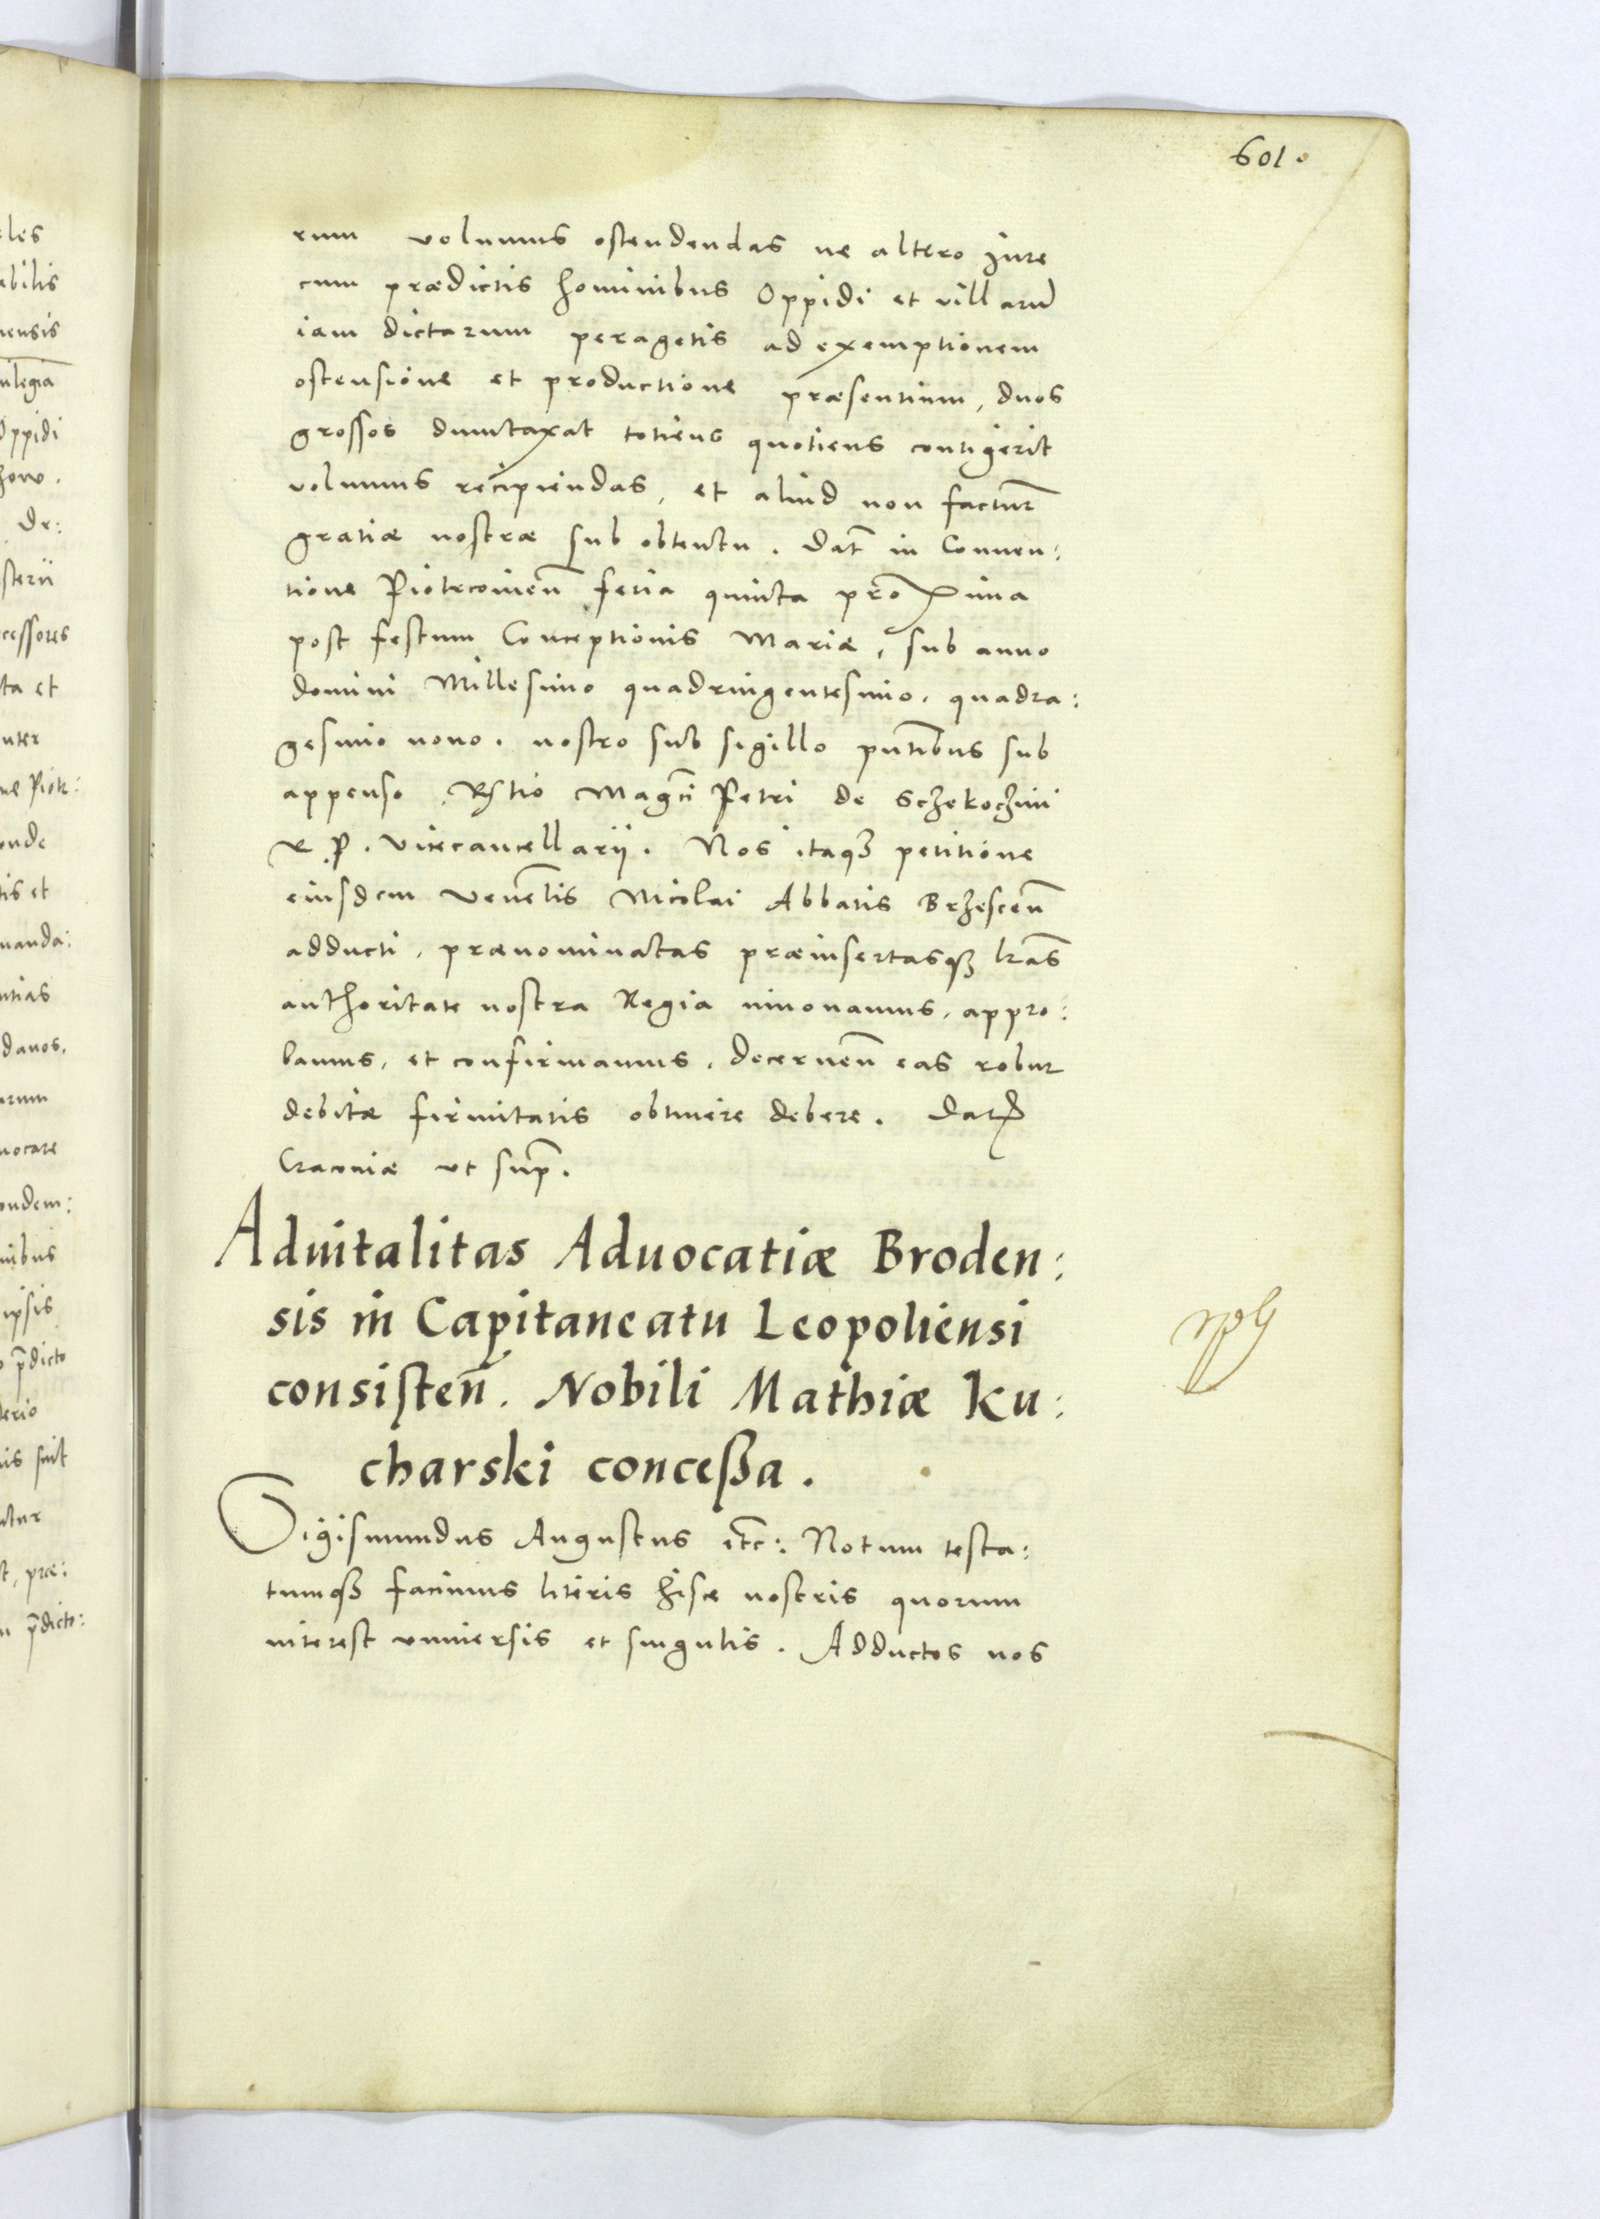 601.
rum volumus ostendendas ne altero iure
cum prædictis hominibus Oppidi et villarū
iam dictarum peragetis ad exemptionem
ostensione et productione præsentium, duos
grossos duntaxat totiens quotiens contigerit
volumus recipiendas, et aliud non factur̄
gratiæ nostræ sub obtentu. Dat̄ in Conuen:
tione Piotrcouien̄ feria quinta proxima
post festum Conceptionis Mariæ, sub anno
domini Millesimo quadringentesimo. quadra:
gesimo nono. nostro sub sigillo pn̄tibus sub
appenso. R̄tio Magc̄i Petri de Sczekoczini
R. P. Vicecancellarij. Nos itaqȝ petitione
eiusdem Venēlis Nicolai Abbatis Brzescen̄
adducti, prænominatas præinsertasqȝ lr̄as
authoritate nostra Regia innouamus, appro:
bamus, et confirmamus. decernen̄ eas robur
debitæ firmitatis obtinere debere. Dat̄
Cracouiæ ut sup̄.
Aduitalitas Aduocatiæ Broden:
sis in Capitaneatu Leopoliensi
consisten̄. Nobili Mathiæ Ku:
charski conceßa.
Sigismundus Augustus etc̄: Notum testa:
tumqȝ facimus literis hisce nostris quorum
interest vniuersis et singulis. Adductos nos
les
abilis
nensis
uilegia
Oppidi
De:
sterii
cessores
ta et
onde
tis et
manda:
ntias
uocare
ondem:
nibus
ipsis
p̄dicto